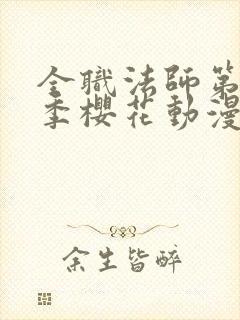 全職法師第
季櫻花動漫
余生皆醉